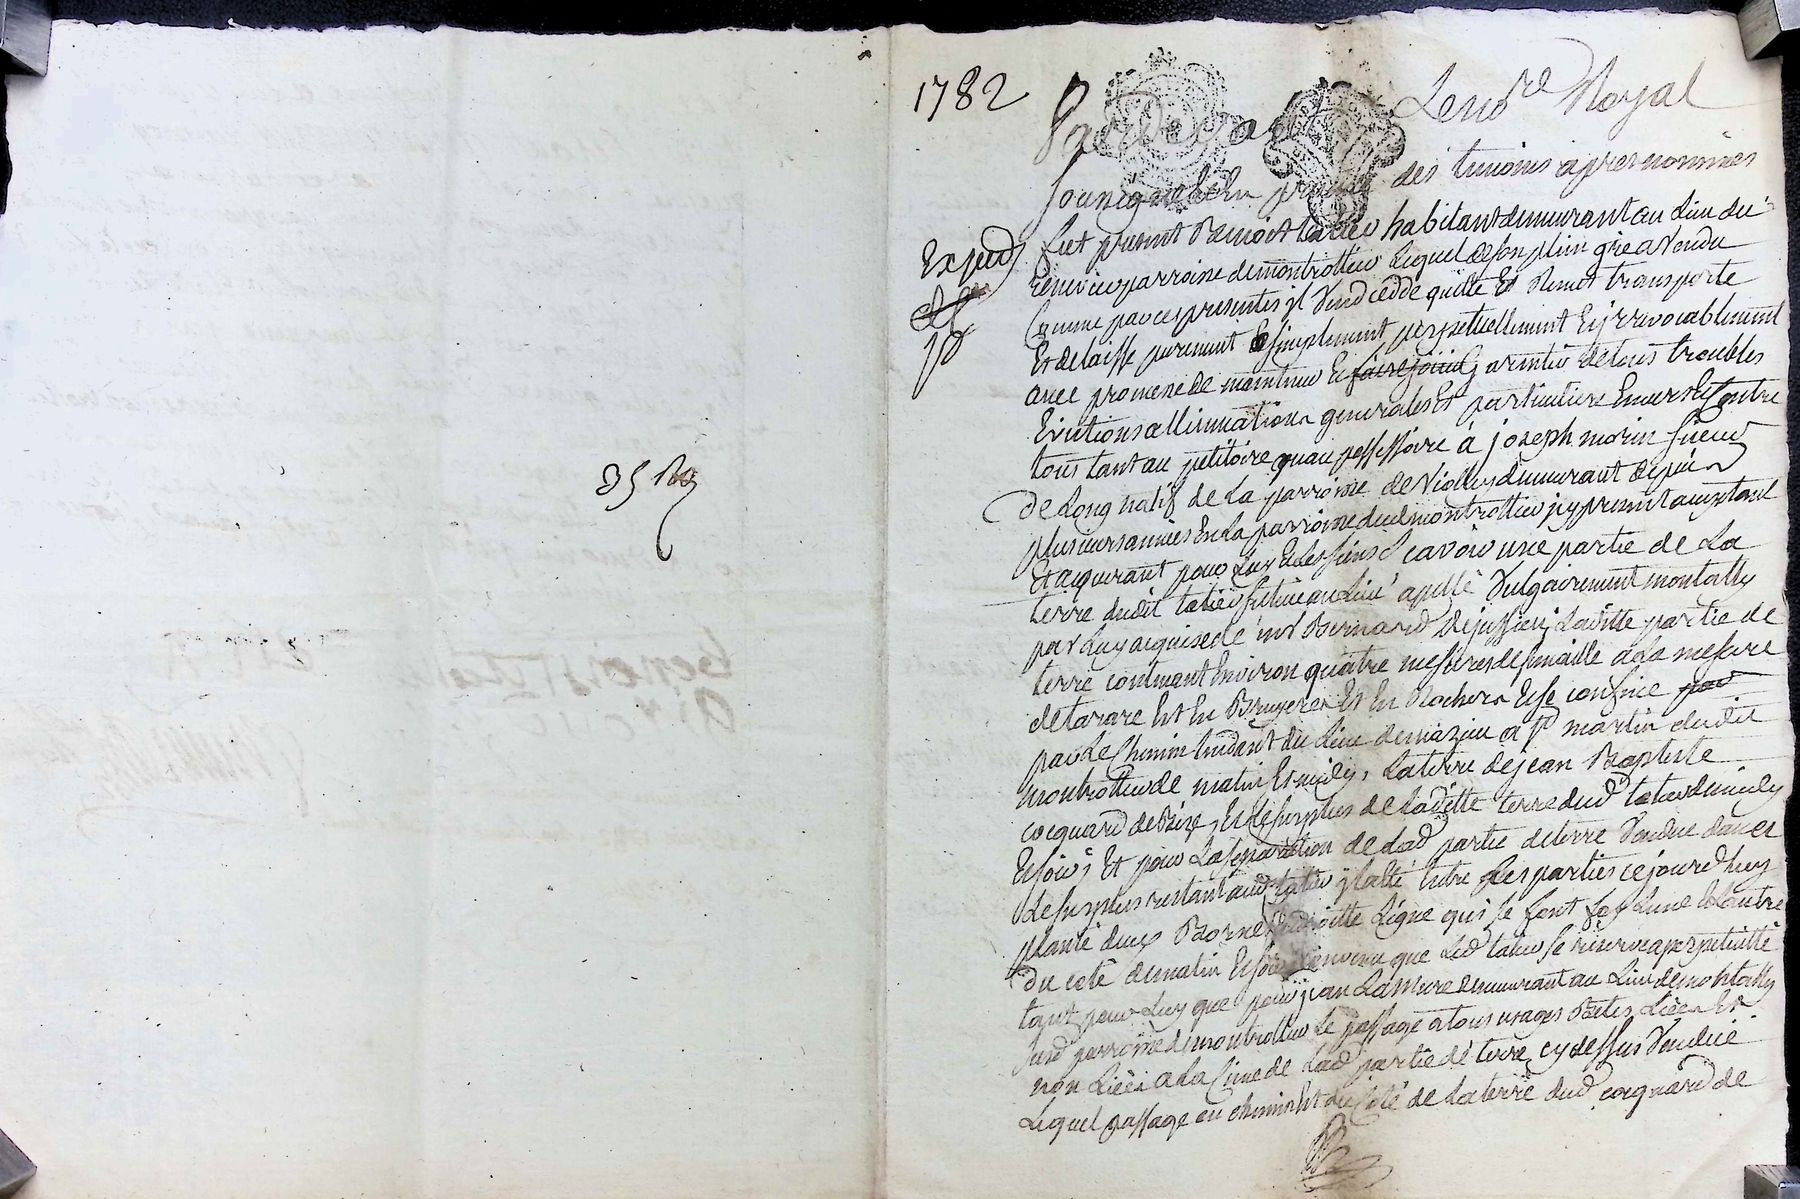 1782
Pardevant Le no.re Royal
Soussigné & En presence des temoins apres nommés
Expéd
fut present Benoit tatieu habitant demeurant au Lieu du
parroisse de montrottieu Lequel de son plein gré a Vendu
Comme par ces presentes il Vend cedde quitte Et Remet transporte
Et delaisse purement & simplement perpetuellement Et irrevocablement
avec promesse de maintenir Et faire jouir garentir de tous troubles
Evictions allienations generales Et particulieres Envers Et Contre
tous tant au petitoire quau pessessoire à joseph morin
de Long natif de La parroisse de Violley demeurant depuis
plusieurs années En La parroisse dud montrottieu icy present acceptant
Et acquerant pour Luy Et Les siens Scavoir une partie de La
terre dudit tatieu située au Lieu apellé Vulgairement montally
par Luy acquise de mr Bernard Dejussieu, Laditte partie de
terre contenant Environ quatre mesures de semaille a La mesure
de tarare Est En Bruyeres Et En Rochers Et se confine par
par Le Chemin tendant du Lieu de mazieu a St martin dudit
montrottieu de matin Et midy, La terre de jean Baptiste
coquard de Bize, Et Le surplus de laditte terre dud tatieu de midy
Et soir, Et pour La separation de Lad partie de terre Vendue d'avec
Le surplus restant aud tatieu il a été Entre Les parties cejourd'huy
planté deux Bornes En droitte Ligne qui se font face Lune Et Lautre
du coté de matin Et soir Convenu que Led tatieu se reserve a perpetuitté
tant pour Luy que pour jean Lamure demeurant au Lieu de montally
susd parroisse de montrottieu Le passage a tous usages Betes Liées Et
non Liées a La Cime de Lad partie de terre cy dessus Vendue
Lequel passage ou chemin Est du Coté de La terre dud coquard de